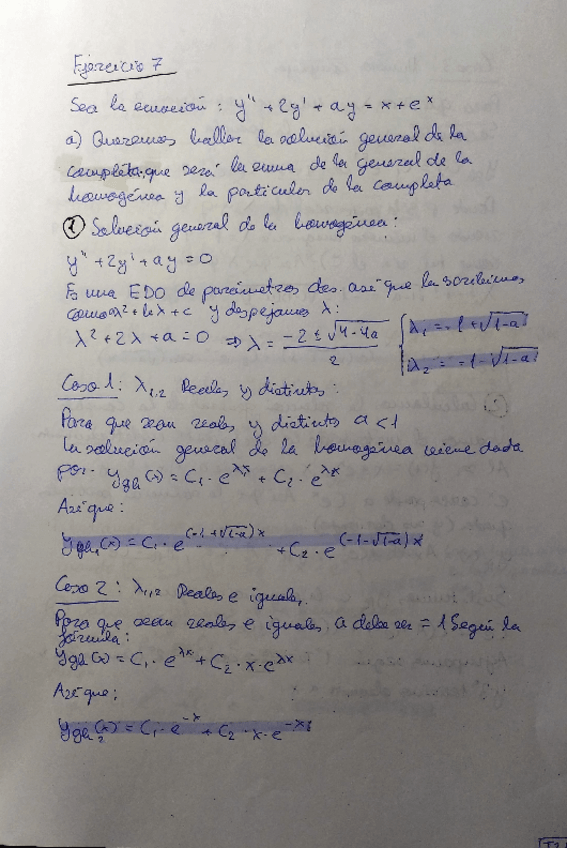 Ejercicio 7
Sea la ecuación: y'' + 2y' + ay = x + e^x
a) Queremos hallar la solución general de la
completa, que será la suma de la general de la
homogénea y la particular de la completa
① Solución general de la homogénea:
y'' + 2y' + ay = 0
Es una EDO de parámetros des. así que la escribimos
como λ² + bλ + c y despejamos λ:
λ² + 2λ + a = 0 ⇒ λ = (-2 ± √(4-4a)) / 2 { λ₁ = -1 + √(1-a)
λ₂ = -1 - √(1-a)
Caso 1: λ₁,₂ Reales y distintos:
Para que sean reales y distintos a < 1
La solución general de la homogénea viene dada
por: y_gh(x) = C₁ · e^(λx) + C₂ · e^(λx)
Así que:
y_gh₁(x) = C₁ · e^((-1+√(1-a))x) + C₂ · e^((-1-√(1-a))x)
Caso 2: λ₁,₂ Reales e iguales.
Para que sean reales e iguales, a debe ser = 1 Según la
fórmula:
y_gh(x) = C₁ · e^(λx) + C₂ · x · e^(λx)
Así que:
y_gh₂(x) = C₁ · e^(-x) + C₂ · x · e^(-x)